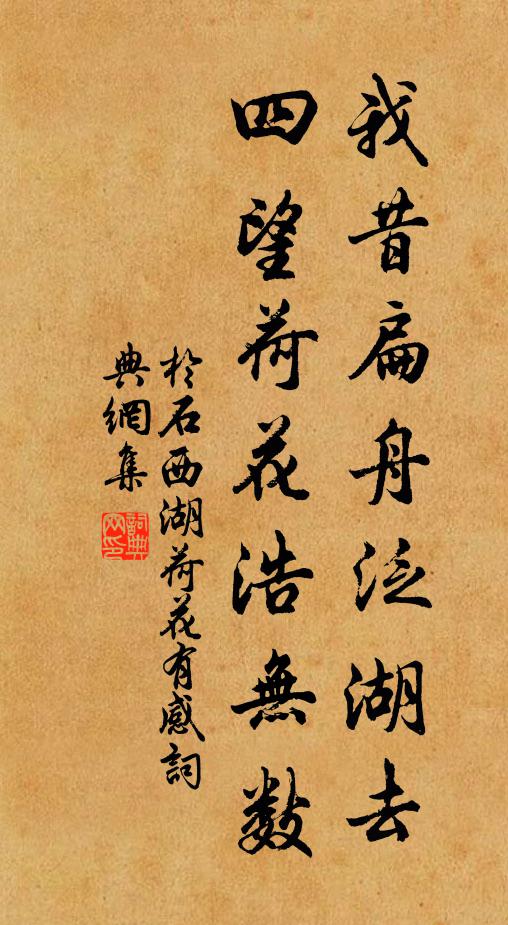 我昔扁舟泛湖去
四望荷花浩無數
於石西湖荷花有感詞
典網集
詞典網印